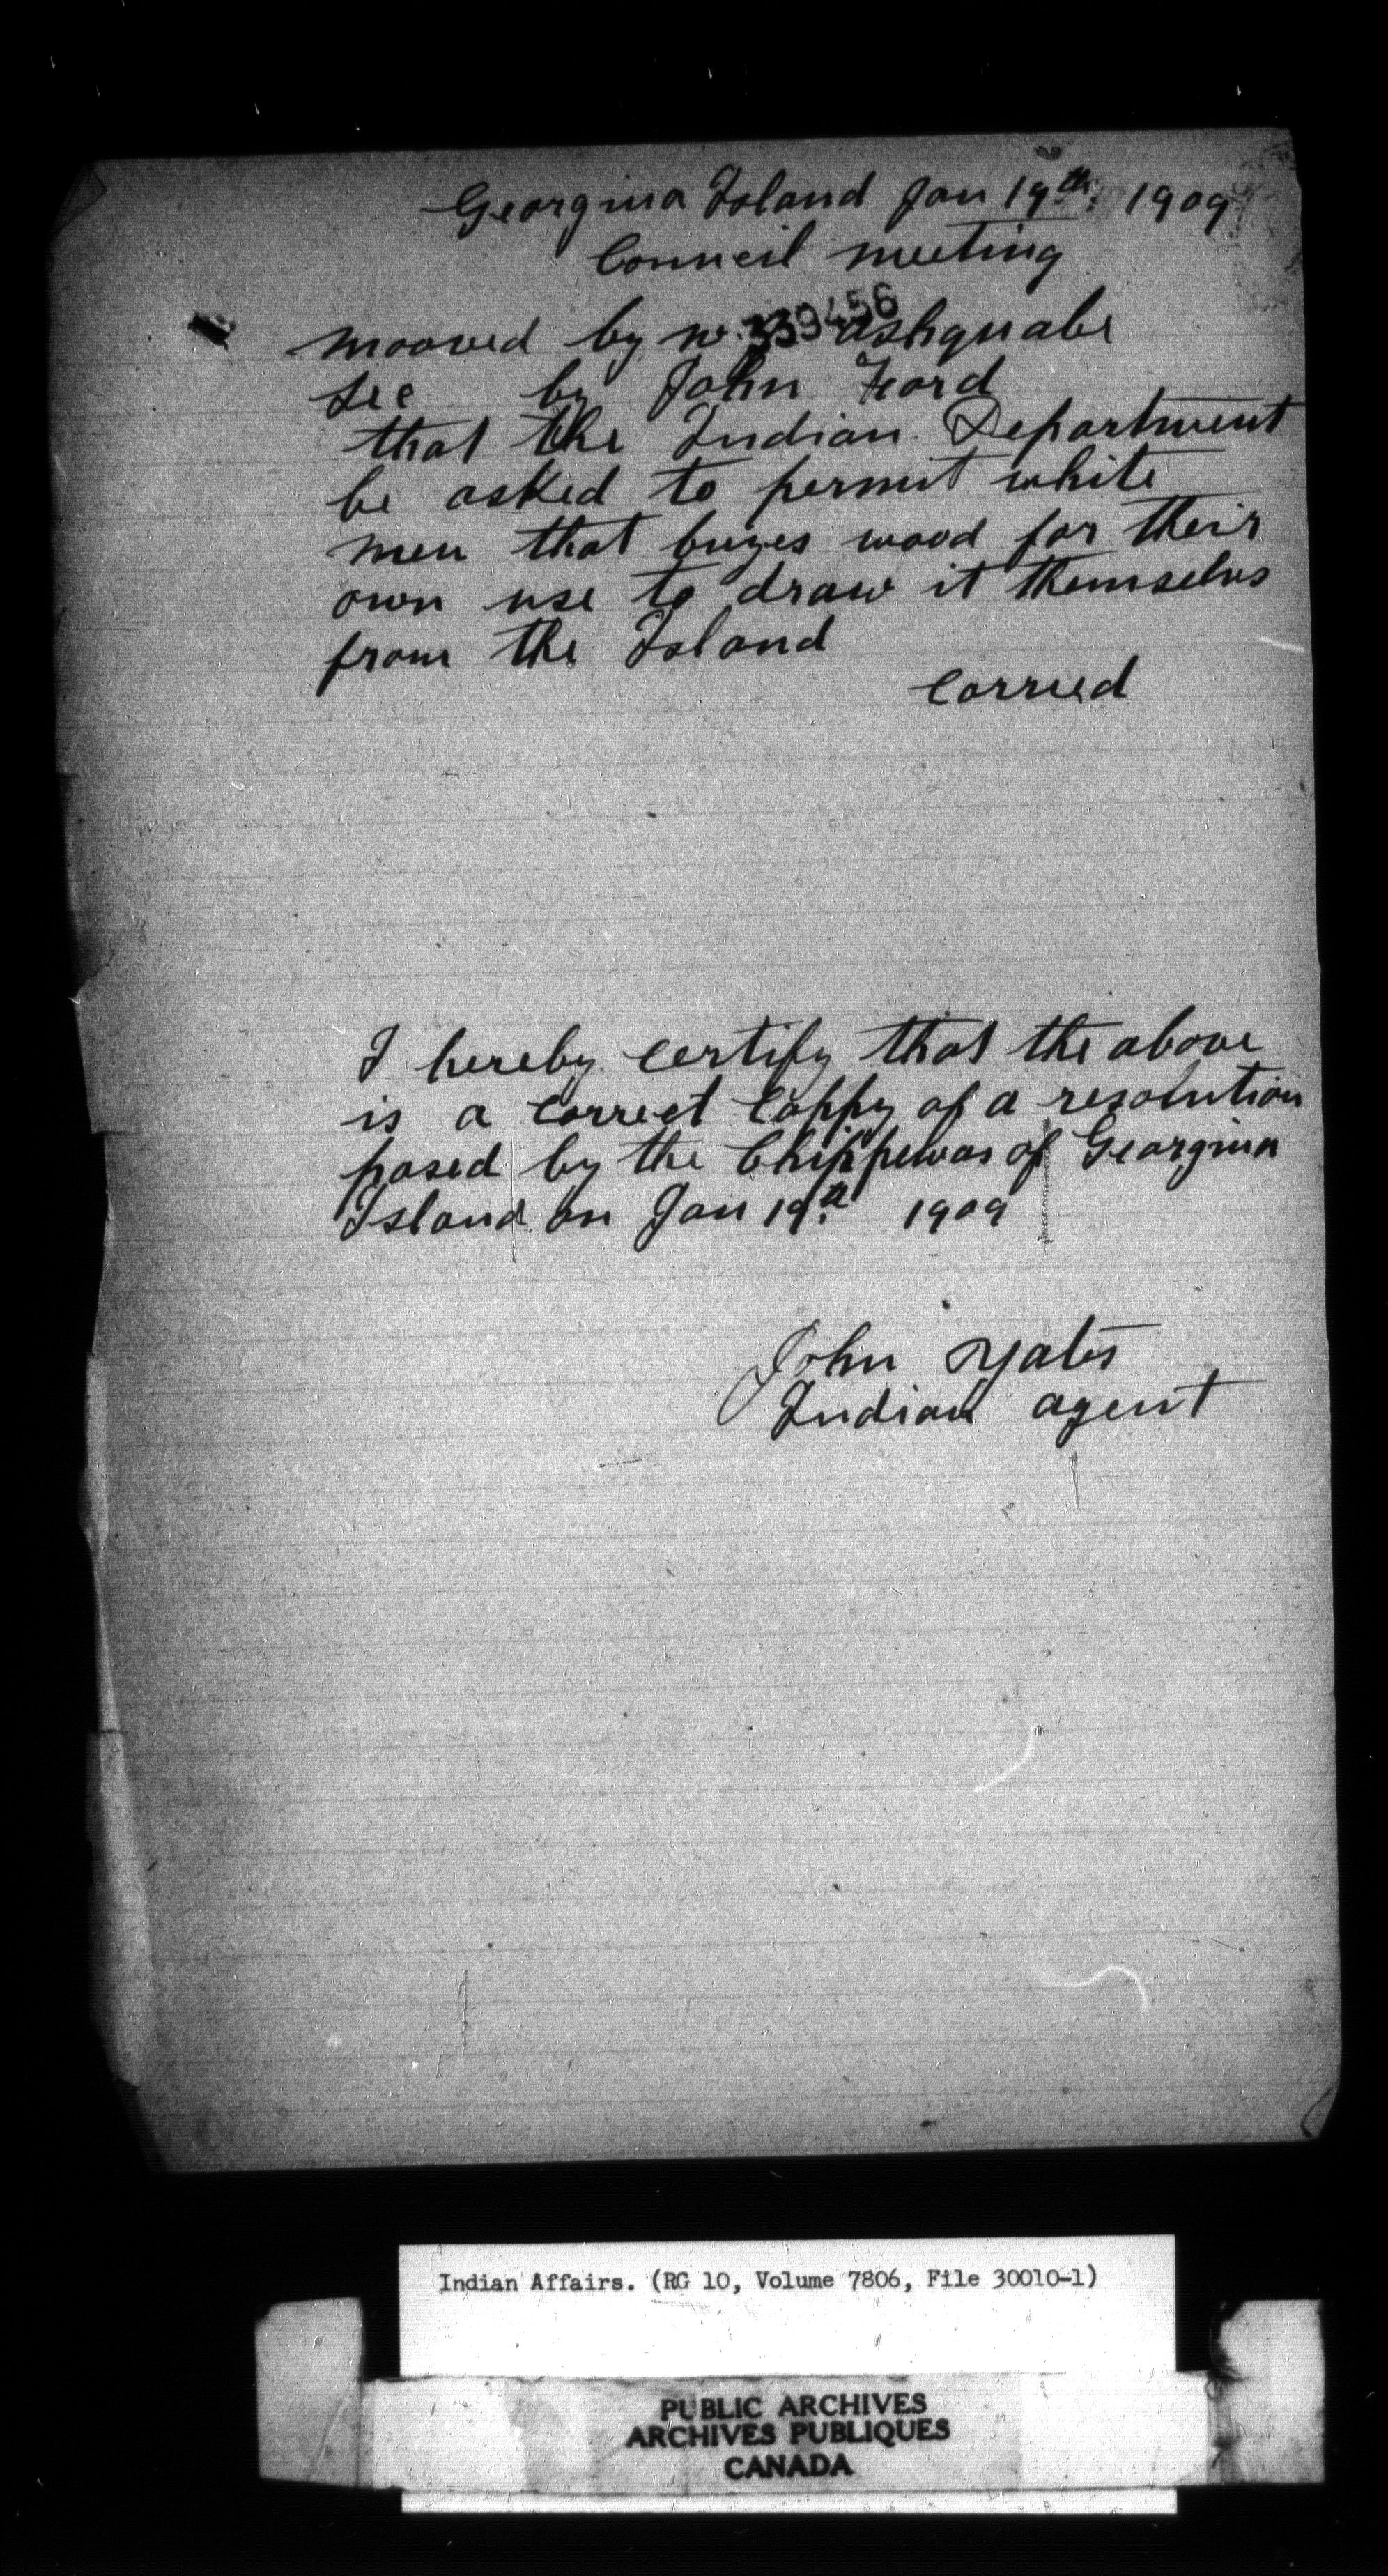 Georgina Island Jan 19th. 1909
Council meeting
339456
mooved by w. ashquabe
sec by John Ford
that the Indian Department
be asked to permit white
men that buyes wood for their
own use to draw it themselvs
from the Island
carried
I hereby certify that the above
is a correct Coppy of a resolution
pased by the Chippewas of Georgina
Island on Jan 19th. 1909
John Yates
Indian agent
Indian Affairs. (RG 10, Volume 7806, File 30010-1)
PUBLIC ARCHIVES
ARCHIVES PUBLIQUES
CANADA